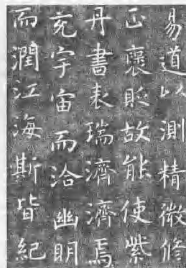 易道以測精微修
正褒貶故能使紫
丹書表瑞濟濟焉
充宇宙而洽幽明
而潤江海斯皆紀